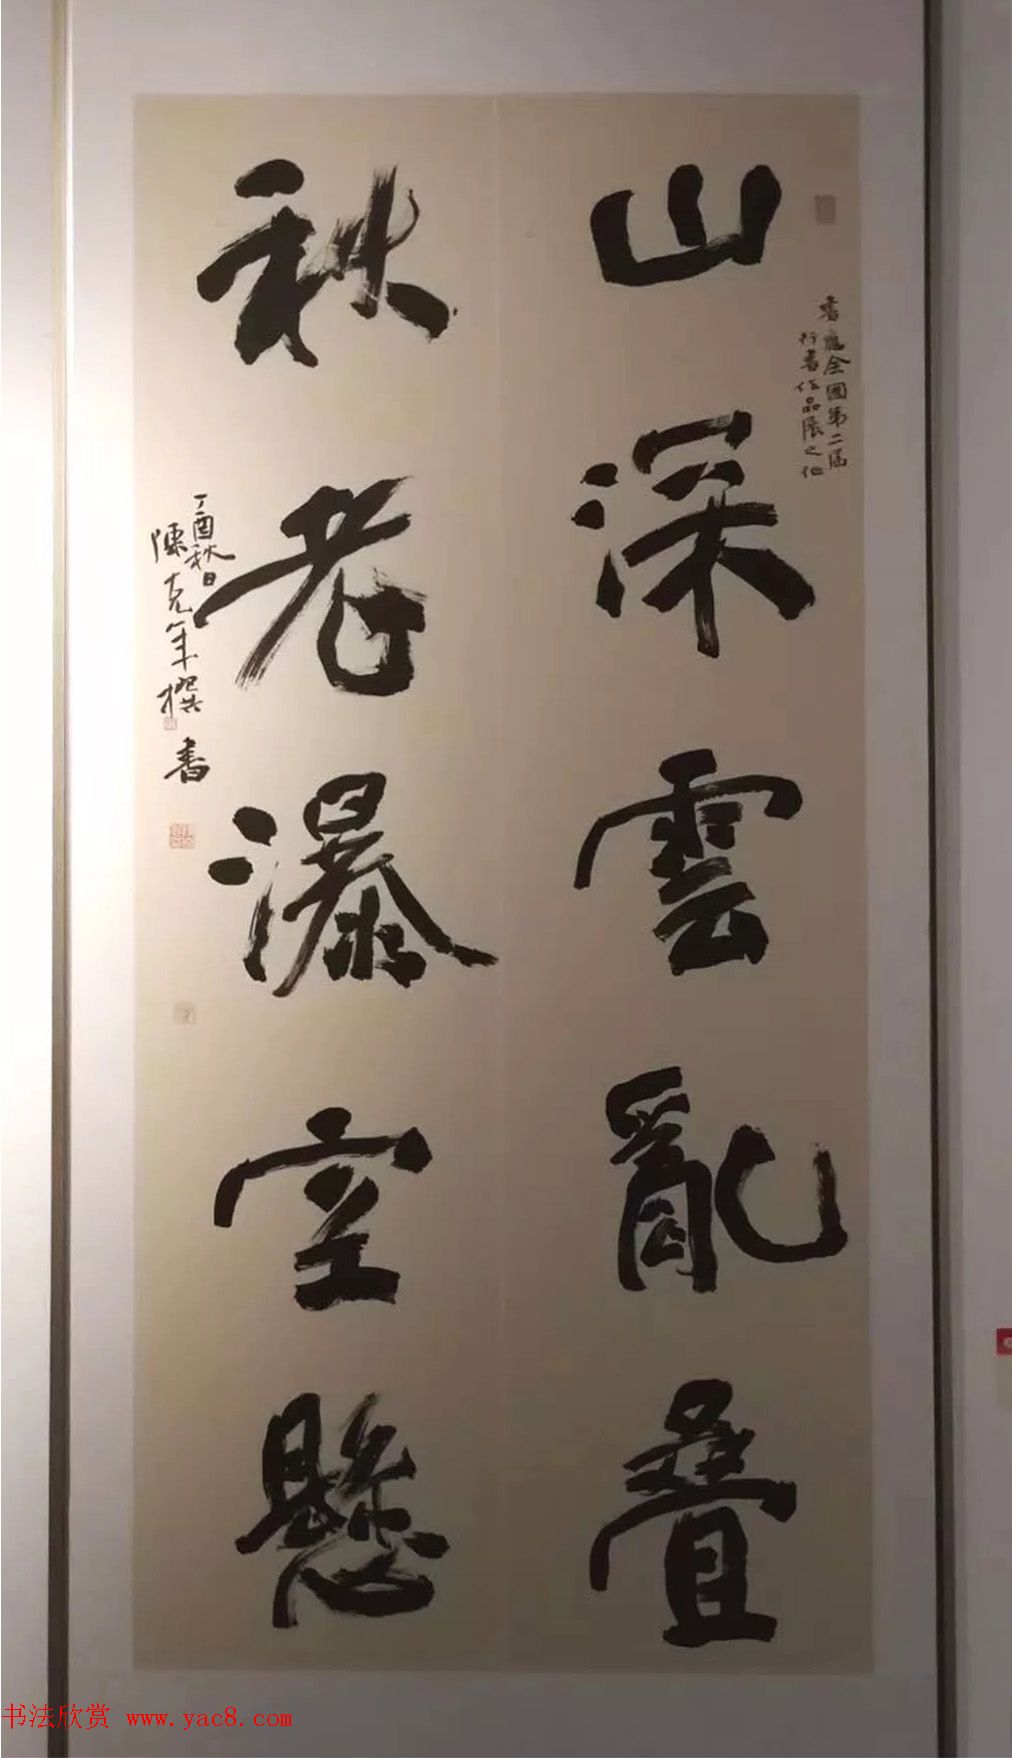 山深雲亂叠
書應全國第二屆
行書作品展之作
秋老瀑空懸
丁酉秋日
陳克年撰書
书法欣赏 www.yac8.com